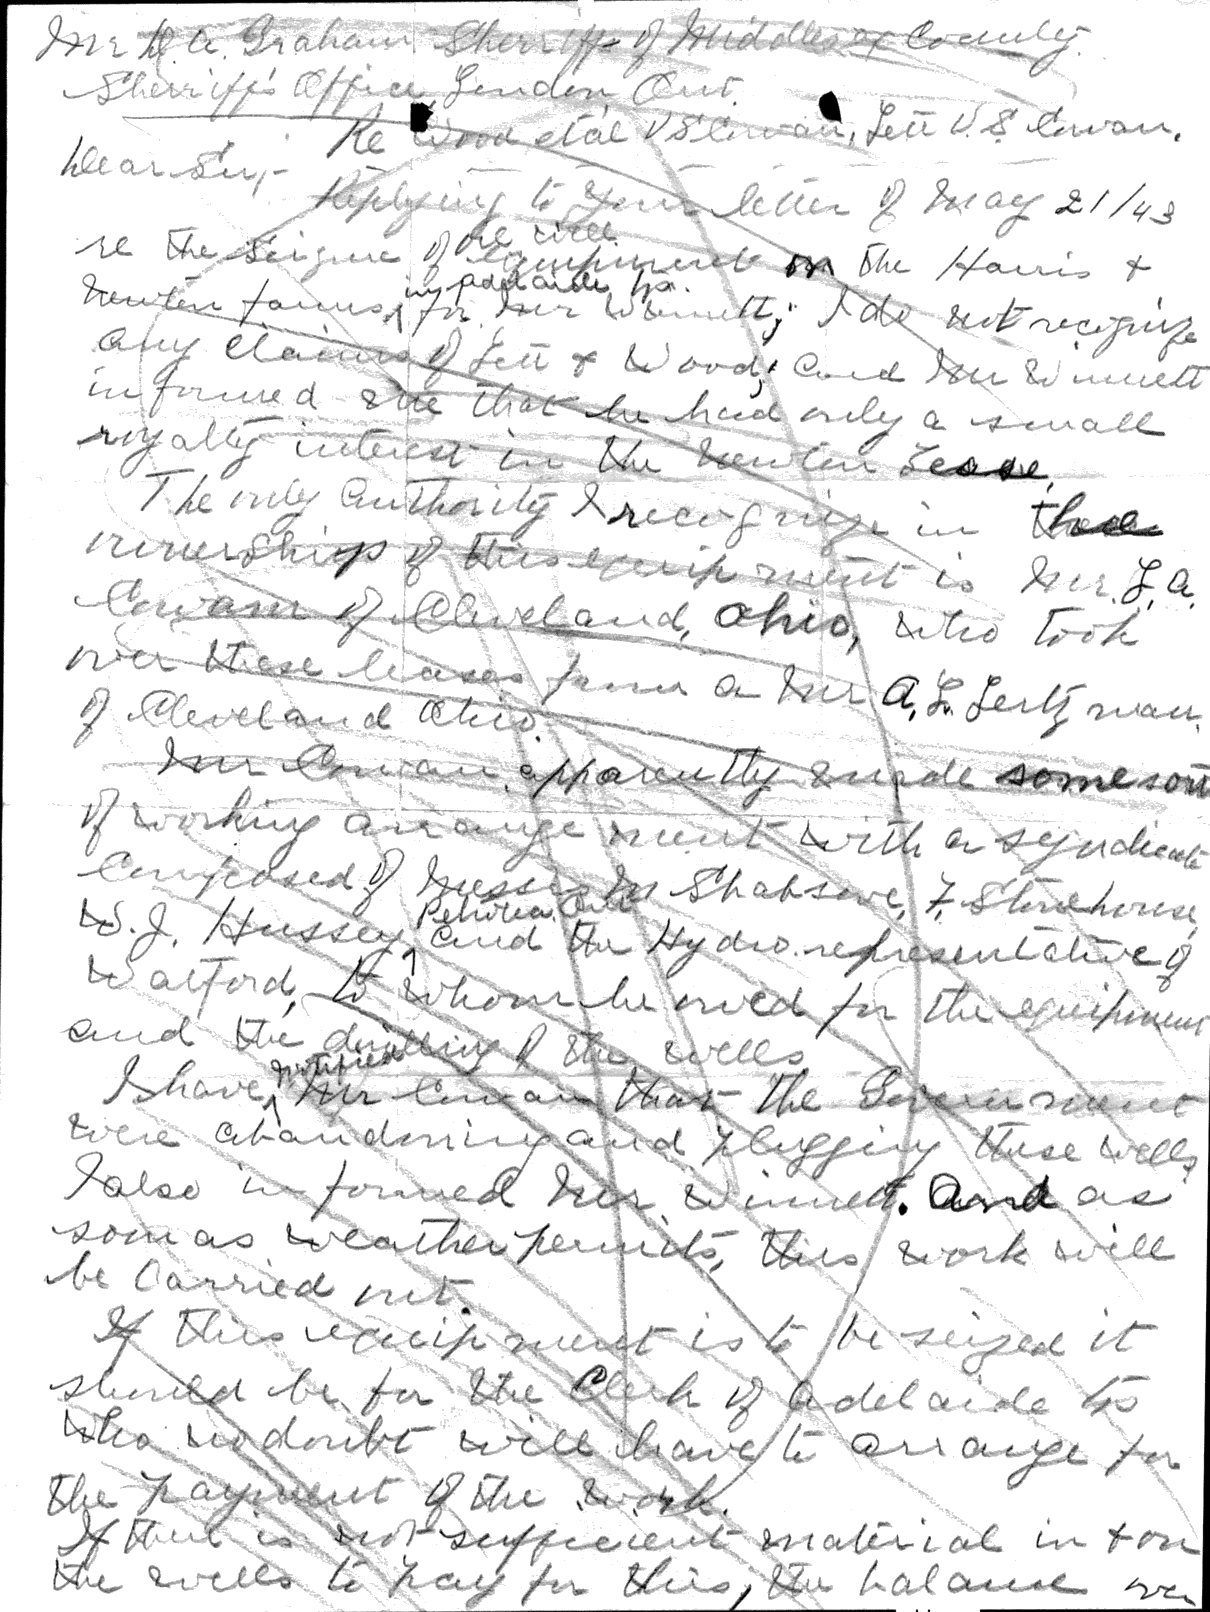 Mr D. A. Graham Sherriff of Middlesex County.
Sherriff's Office, London, Ont.
Re Wood et al VS Cowan, Lett V.S. Cowan.
Dear Sir,-
Replying to your letter of May 21/43
re the seizure of oil well equipment on the Harris &
Newton farms, in Adelaide Tp. for Mr Winnett; I do not recognize
any claims of Lett & Wood; and Mr Winnett
informed me that he had only a small
royalty interest in the Newton Lease.
The only authority I recognize in the
ownership of this equipment is Mr. L. A.
Cowan of Cleveland, Ohio, who took
over these leases from a Mr A. L.
of Cleveland Ohio.
Mr Cowan apparently made some sort
of working arrangement with a syndicate
Composed of Messrs M Shabsove, F. Stonehouse,
W. J. Hussey, Petrolia Ont. and the Hydro representative of
Watford, to whom he owed for the equipment
and the drilling of the wells
I have notified Mr Cowan that the Government
were abandoning and plugging these wells,
I also informed Mr. Winnett. And as
soon as weather permits, this work will
be carried out.
If this equipment is to be seized it
should be for the Clerk of Adelaide Tp
who no doubt will have to arrange for
the payment of the work.
If there is not sufficient material in & on
the wells to pay for this, the balance